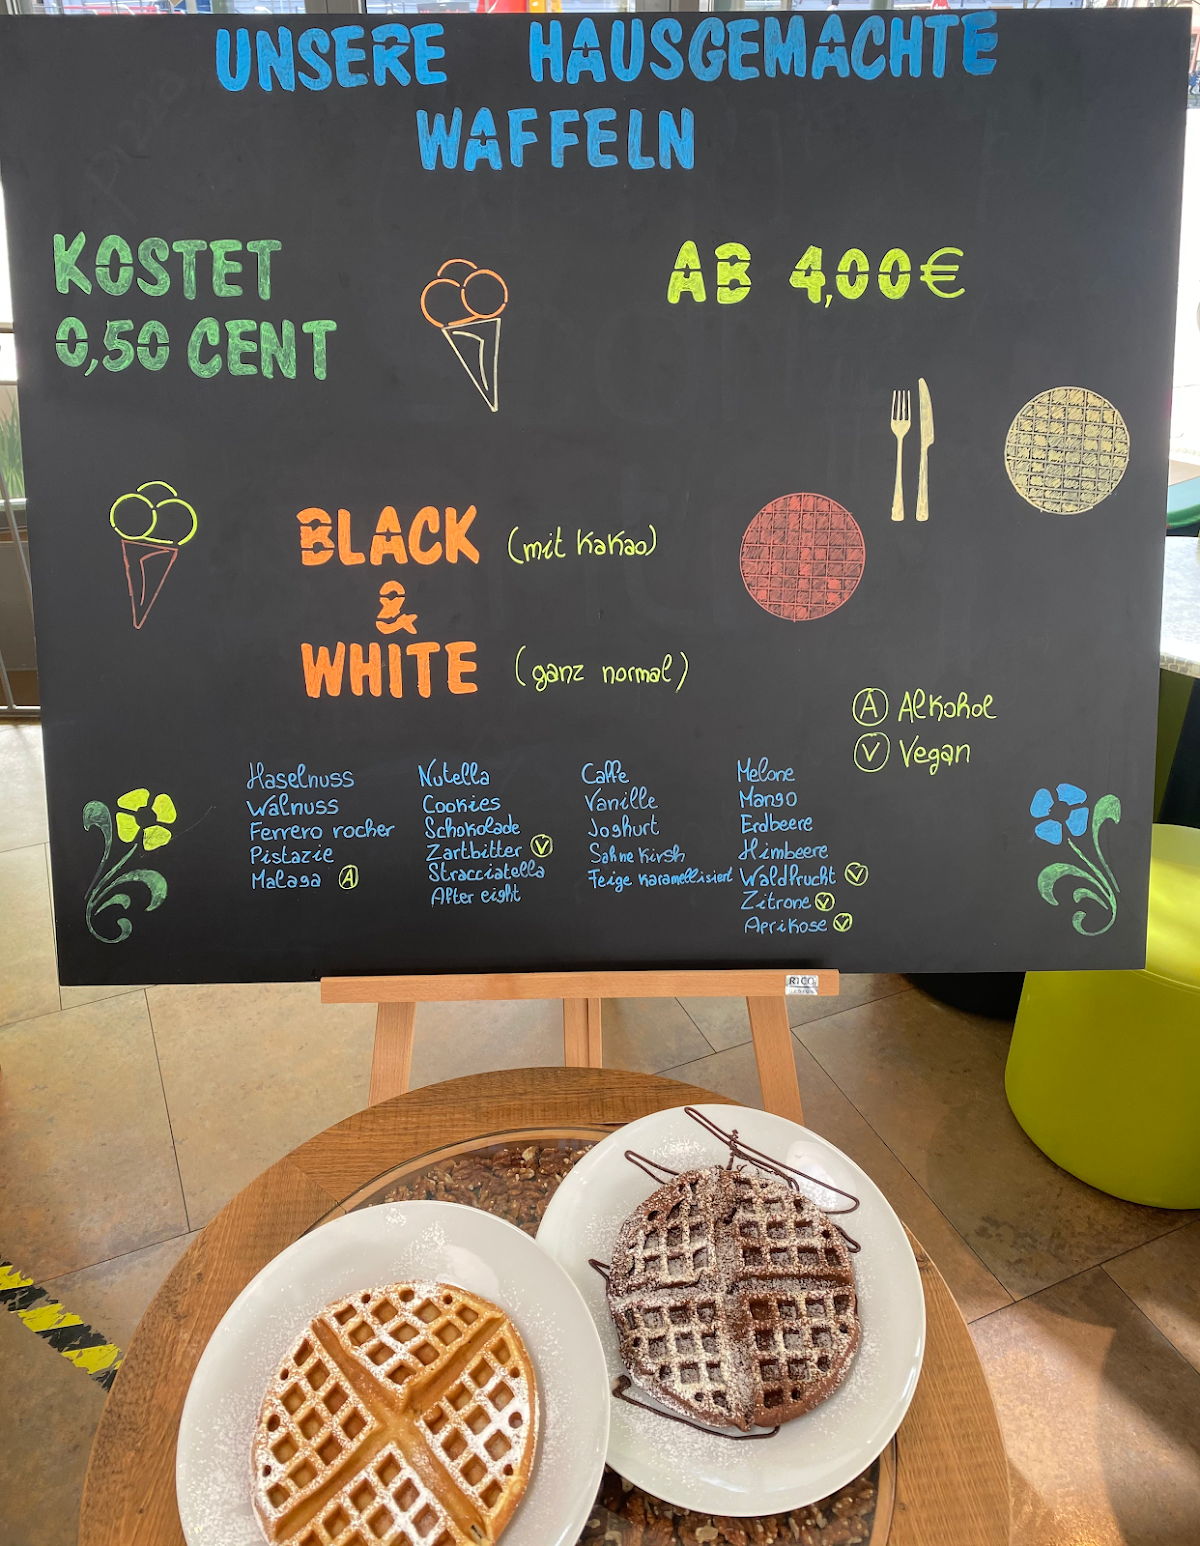 UNSERE HAUSGEMACHTE
WAFFELN
KOSTET
0,50 CENT
AB 4,00€
BLACK (mit Kakao)
&
WHITE (ganz normal)
A Alkohol
V Vegan
Haselnuss
Walnuss
Ferrero rocher
Pistazie
Malaga A
Nutella
Cookies
Schokolade
Zartbitter V
Stracciatella
After eight
Caffe
Vanille
Joghurt
Sahne Kirsh
Feige karamellisiert
Melone
Mango
Erdbeere
Himbeere
Waldfrucht V
Zitrone V
Aprikose V
RICO